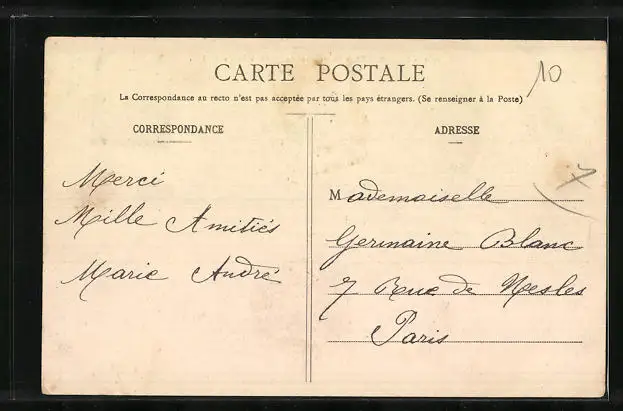 CARTE POSTALE
10
La Correspondance au recto n'est pas acceptée par tous les pays étrangers. (Se renseigner à la Poste)
CORRESPONDANCE
Merci
Mille Amitiés
Marie André
ADRESSE
Mademoiselle
Germaine Blanc
7 Rue de Nesles
Paris